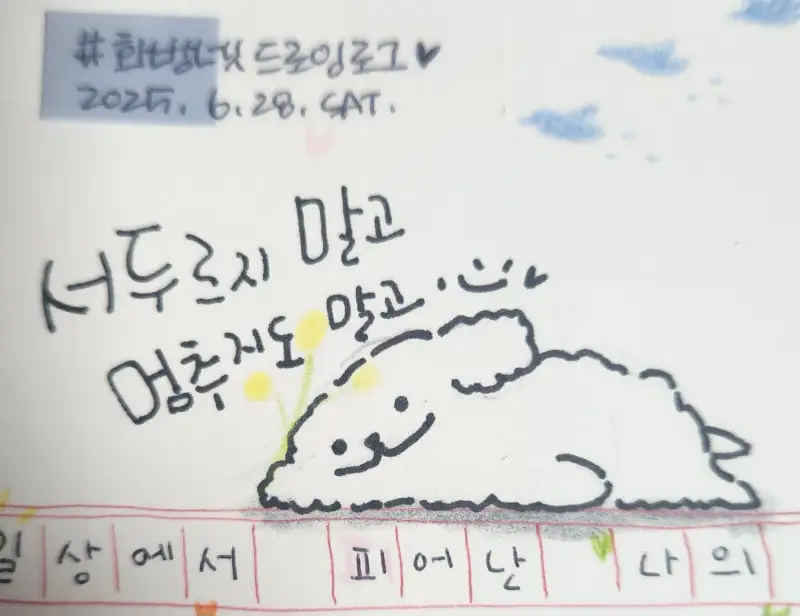 #희방넷드로잉로그♥
2025. 6. 28. SAT.
서두르지 말고
멈추지도 말고
일상에서 피어난 나의